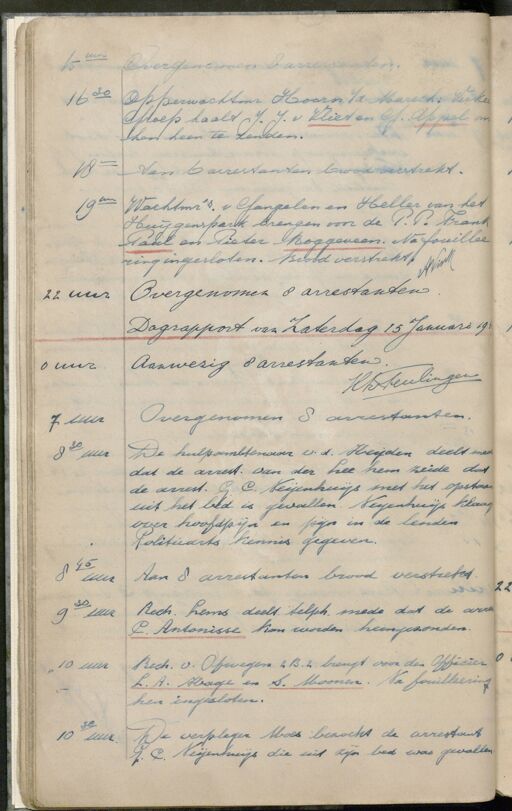 15 uur Overgenomen 8 arrestanten.
16 30 Opperwachtmr Hoorn v/d Marech.
groep haalt J. J. v Vliet en G. Appel om
hen heen te zenden.
18 uur Aan 6 arrestanten brood verstrekt.
19 uur Wachtmrs. v Gangelen en Heller van het
Huygenspark brengen voor de P.P. Frank
Paul en Pieter Koggeveen. Na fouillee
ring ingesloten. Brood verstrekt.
22 uur Overgenomen 8 arrestanten.
Dagrapport van Zaterdag 15 Januari 19
0 uur Aanwezig 8 arrestanten.
7 uur Overgenomen 8 arrestanten.
8 30 uur De hulpambtenaar v.d. Heyden deelt mee
dat de arrest. van der Lee hem zeide dat
de arrest. G. C. Neijenhuijs met het opstaan
uit het bed is gevallen. Neyenhuijs klaag
over hoofdpijn en pijn in de lenden
Politiearts kennis gegeven.
8 45 uur Aan 8 arrestanten brood verstrekt.
9 30 uur Rech. Lems deelt telph. mede dat de arres
C. Antonisse kan worden heengezonden.
10 uur Rech. v. Ofwegen brengt voor den Officier
L. A. Hage en S. Moonen. Na fouilleering
hen ingesloten.
10 30 uur De verpleger Moes bezocht de arrestant
G. C. Neijenhuijs die uit zijn bed was gevallen
22
0